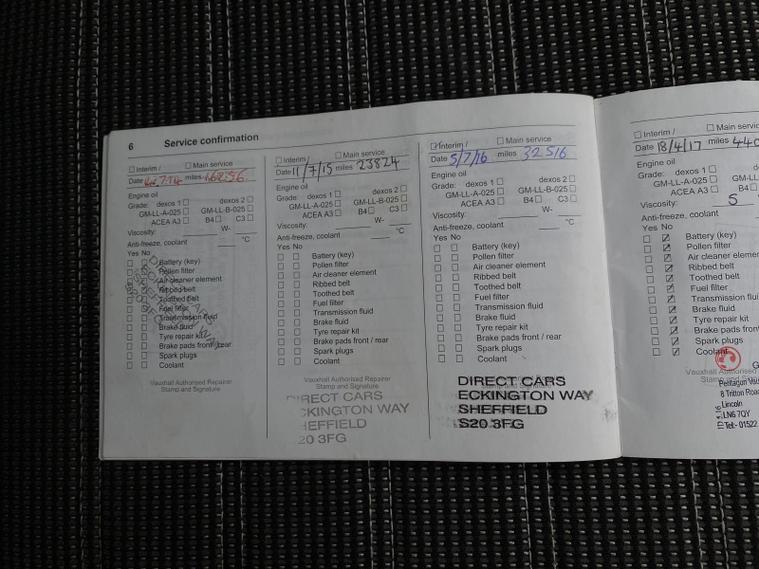 6 Service confirmation
☐ Interim / ☐ Main service
Date miles 16256
Engine oil
Grade: dexos 1 ☐ dexos 2 ☐
GM-LL-A-025 ☐ GM-LL-B-025 ☐
ACEA A3 ☐ B4 ☐ C3 ☐
Viscosity: W-
Anti-freeze, coolant °C
Yes No
☐ ☐ Battery (key)
☐ ☐ Pollen filter
☐ ☐ Air cleaner element
☐ ☐ Ribbed belt
☐ ☐ Toothed belt
☐ ☐ Fuel filter
☐ ☐ Transmission fluid
☐ ☐ Brake fluid
☐ ☐ Tyre repair kit
☐ ☐ Brake pads front / rear
☐ ☐ Spark plugs
☐ ☐ Coolant
Vauxhall Authorised Repairer
Stamp and Signature
☐ Interim / ☐ Main service
Date 11/7/15 miles 23824
Engine oil
Grade: dexos 1 ☐ dexos 2 ☐
GM-LL-A-025 ☐ GM-LL-B-025 ☐
ACEA A3 ☐ B4 ☐ C3 ☐
Viscosity: W-
Anti-freeze, coolant °C
Yes No
☐ ☐ Battery (key)
☐ ☐ Pollen filter
☐ ☐ Air cleaner element
☐ ☐ Ribbed belt
☐ ☐ Toothed belt
☐ ☐ Fuel filter
☐ ☐ Transmission fluid
☐ ☐ Brake fluid
☐ ☐ Tyre repair kit
☐ ☐ Brake pads front / rear
☐ ☐ Spark plugs
☐ ☐ Coolant
Vauxhall Authorised Repairer
Stamp and Signature
IRECT CARS
CKINGTON WAY
HEFFIELD
20 3FG
☑ Interim / ☐ Main service
Date 5/7/16 miles 32516
Engine oil
Grade: dexos 1 ☐ dexos 2 ☐
GM-LL-A-025 ☐ GM-LL-B-025 ☐
ACEA A3 ☐ B4 ☐ C3 ☐
Viscosity: W-
Anti-freeze, coolant °C
Yes No
☐ ☐ Battery (key)
☐ ☐ Pollen filter
☐ ☐ Air cleaner element
☐ ☐ Ribbed belt
☐ ☐ Toothed belt
☐ ☐ Fuel filter
☐ ☐ Transmission fluid
☐ ☐ Brake fluid
☐ ☐ Tyre repair kit
☐ ☐ Brake pads front / rear
☐ ☐ Spark plugs
☐ ☐ Coolant
DIRECT CARS
ECKINGTON WAY
SHEFFIELD
S20 3FG
☐ Interim / ☐ Main
Date 18/4/17 miles 440
Engine oil
Grade: dexos 1 ☐
GM-LL-A-025 ☐ GM-LL
ACEA A3 ☐ B4
Viscosity: 5
Anti-freeze, coolant
Yes No
☐ ☑ Battery (key)
☐ ☑ Pollen filter
☐ ☑ Air cleaner eleme
☐ ☑ Ribbed belt
☐ ☑ Toothed belt
☐ ☑ Fuel filter
☐ ☑ Transmission flui
☐ ☑ Brake fluid
☐ ☑ Tyre repair kit
☐ ☑ Brake pads front
☐ ☑ Spark plugs
☐ ☑ Coolant
Vauxhall Authorised
Stamp and
Pentagon
8 Tritton Road
Lincoln
LN6 7QY
Tel:- 01522